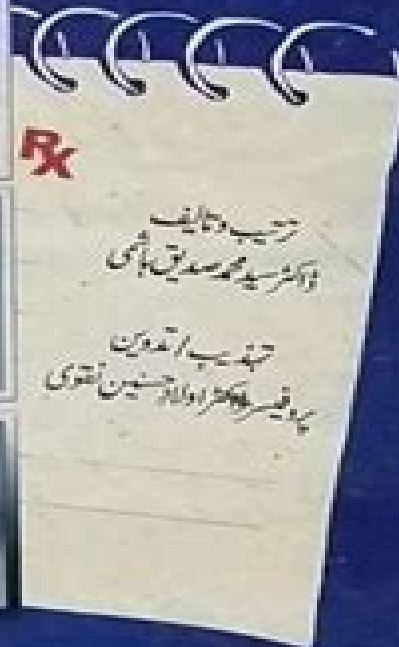 Rx
ترتیب و تالیف
ڈاکٹر سید محمد صدیق ہاشمی
تہذیب / تدوین
پروفیسر ڈاکٹر اولاد حسنین نقوی